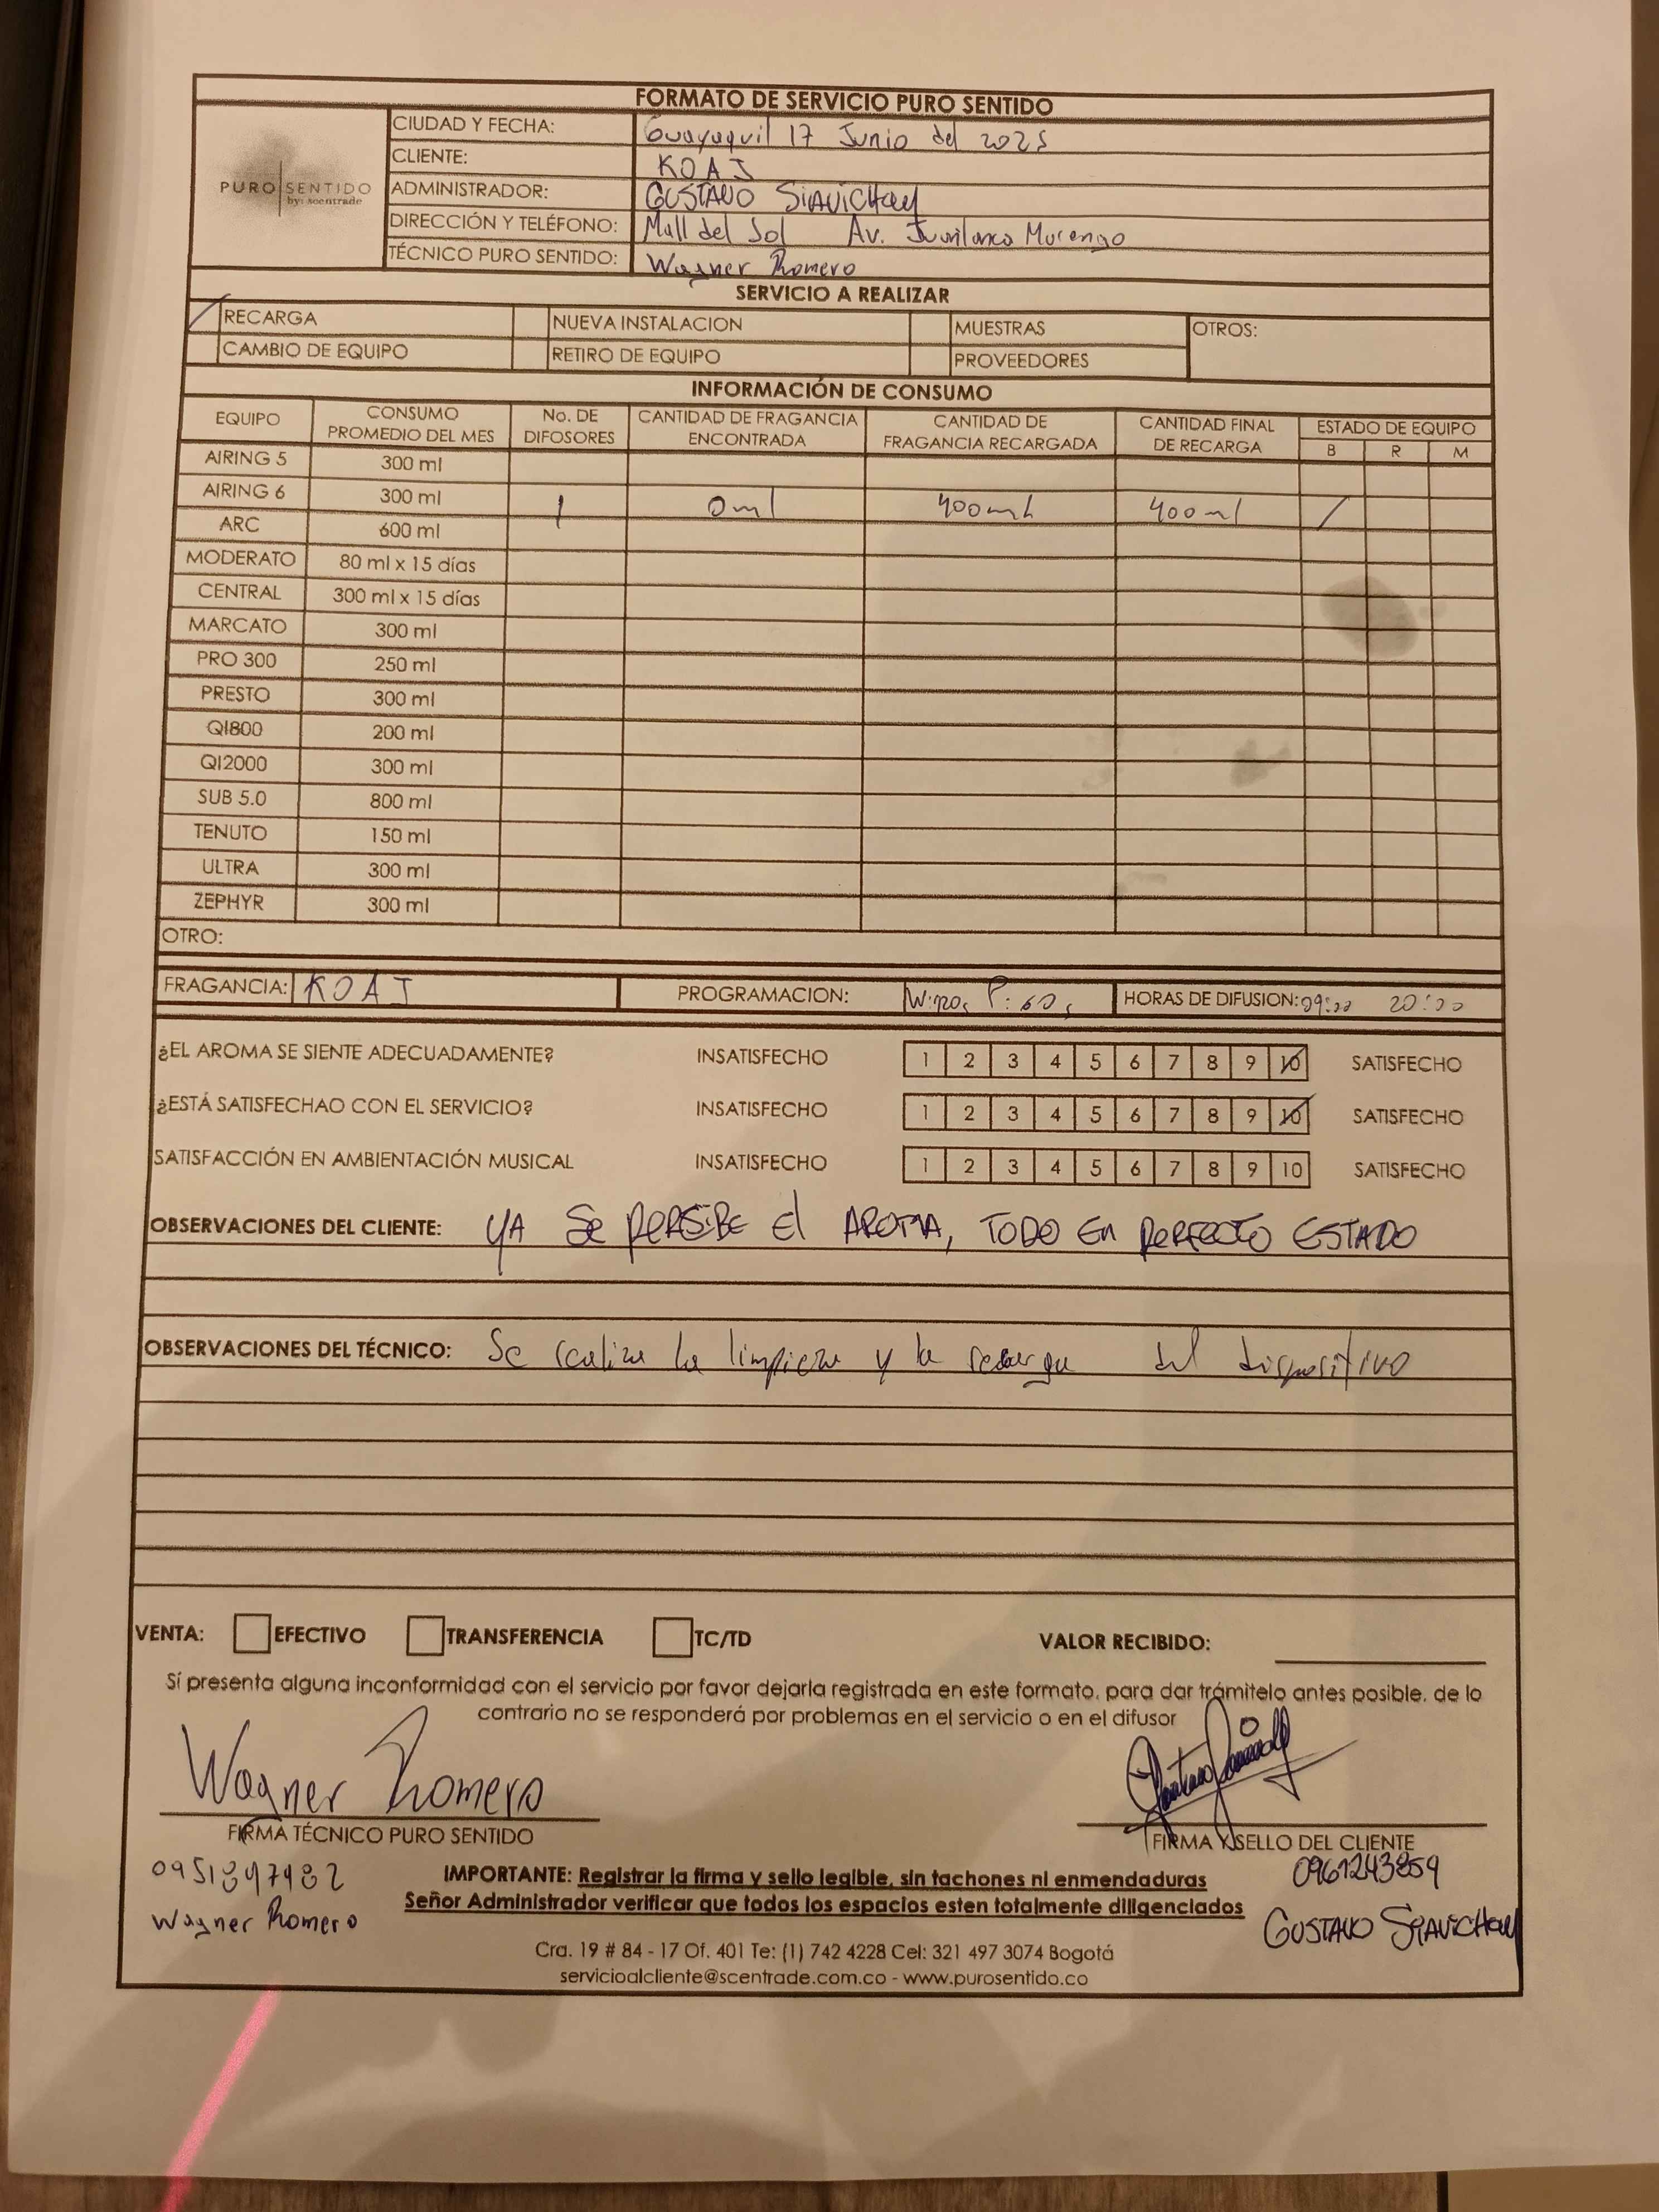 FORMATO DE SERVICIO PURO SENTIDO
PURO SENTIDO
by: scentrade
CIUDAD Y FECHA: Guayaquil 17 Junio del 2025
CLIENTE: KOAJ
ADMINISTRADOR: GUSTAVO SIAVICHAY
DIRECCIÓN Y TELÉFONO: Mall del Sol Av. Juan
TÉCNICO PURO SENTIDO: Wagner Romero
SERVICIO A REALIZAR
RECARGA NUEVA INSTALACION MUESTRAS OTROS:
CAMBIO DE EQUIPO RETIRO DE EQUIPO PROVEEDORES
INFORMACIÓN DE CONSUMO
EQUIPO CONSUMO PROMEDIO DEL MES No. DE DIFOSORES CANTIDAD DE FRAGANCIA ENCONTRADA CANTIDAD DE FRAGANCIA RECARGADA CANTIDAD FINAL DE RECARGA ESTADO DE EQUIPO
B R M
AIRING 5 300 ml
AIRING 6 300 ml 1 0ml 400ml 400ml /
ARC 600 ml
MODERATO 80 ml x 15 días
CENTRAL 300 ml x 15 días
MARCATO 300 ml
PRO 300 250 ml
PRESTO 300 ml
QI800 200 ml
QI2000 300 ml
SUB 5.0 800 ml
TENUTO 150 ml
ULTRA 300 ml
ZEPHYR 300 ml
OTRO:
FRAGANCIA: KOAJ PROGRAMACION: P: 60s HORAS DE DIFUSION: 09:00 20:00
¿EL AROMA SE SIENTE ADECUADAMENTE? INSATISFECHO 1 2 3 4 5 6 7 8 9 10 SATISFECHO
¿ESTÁ SATISFECHAO CON EL SERVICIO? INSATISFECHO 1 2 3 4 5 6 7 8 9 10 SATISFECHO
SATISFACCIÓN EN AMBIENTACIÓN MUSICAL INSATISFECHO 1 2 3 4 5 6 7 8 9 10 SATISFECHO
OBSERVACIONES DEL CLIENTE: YA SE PERSIBE El AROMA, TODO EN PERFECTO ESTADO
OBSERVACIONES DEL TÉCNICO: Se realiza la limpieza y la recarga del dispositivo
VENTA: EFECTIVO TRANSFERENCIA TC/TD VALOR RECIBIDO:
Sí presenta alguna inconformidad con el servicio por favor dejarla registrada en este formato, para dar trámitelo antes posible, de lo
contrario no se responderá por problemas en el servicio o en el difusor
Wagner Romero
FIRMA TÉCNICO PURO SENTIDO FIRMA Y SELLO DEL CLIENTE
0961243859
IMPORTANTE: Registrar la firma y sello legible, sin tachones ni enmendaduras
Señor Administrador verificar que todos los espacios esten totalmente diligenciados
Wagner Romero GUSTAVO SIAVICHAY
Cra. 19 # 84 - 17 Of. 401 Te: (1) 742 4228 Cel: 321 497 3074 Bogotá
servicioalcliente@scentrade.com.co - www.purosentido.co